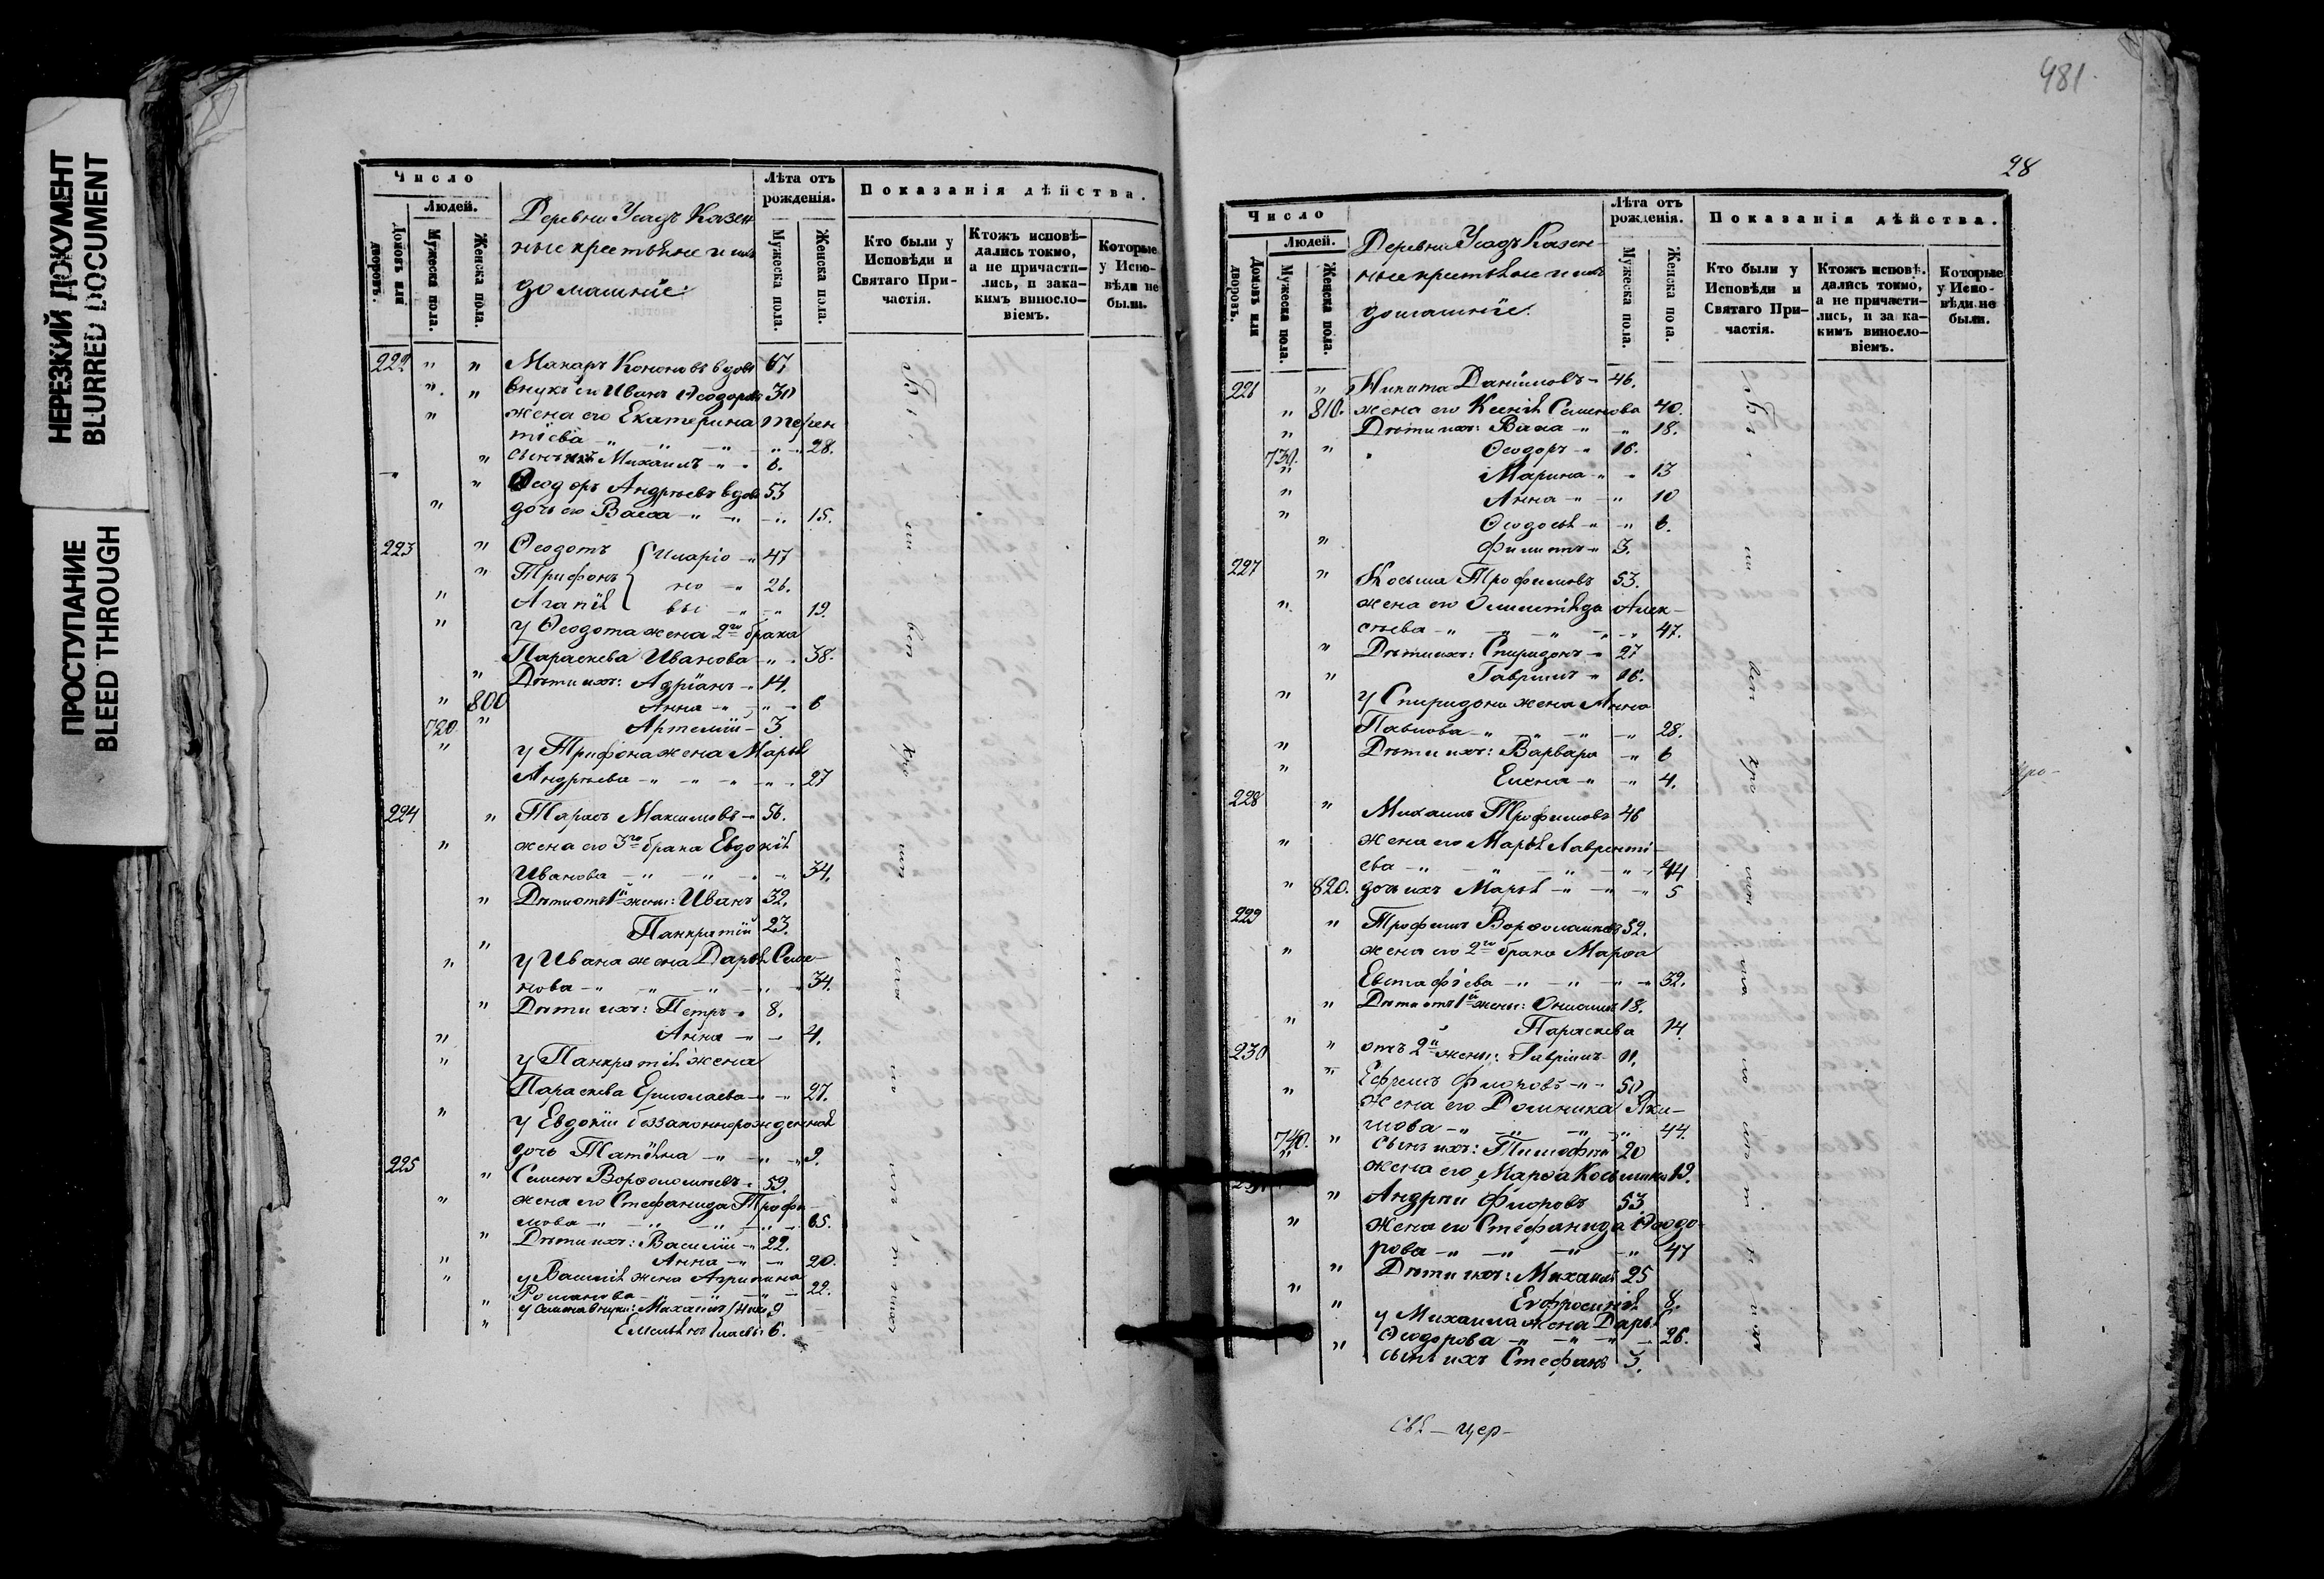 НЕРЕЗКИЙ ДОКУМЕНТ
BLURRED DOCUMENT
ПРОСТУПАНИЕ
BLEED THROUGH
Число
Людей.
Домовъ или дворовъ.
Мужеска пола.
Женска пола.
Деревни Усадъ Казен
ные крестьяне и ихъ
домашніе:
Лѣта отъ рожденія.
Мужеска пола.
Женска пола.
Показанія дѣйства.
Кто были у Исповѣди и Святаго Причастія.
Ктожъ исповѣдались токмо, а не причастились, и закакимъ винословіемъ.
Которые у Исповѣди не были.
222 " " Макаръ Кононовъ вдовъ 67,
" " внукъ его Иванъ Ѳеодоровъ 30
" жена его Екатерина Терен
тіева - " - " 28.
" сынъ ихъ Михаилъ - " 6.
" Ѳеодоръ Андреевъ вдовъ 53
" дочь его Васса - " - " 15.
223 " Ѳеодотъ { Иларіо - " 47
" Трифонъ { но - " 26.
" Агапія { вы - " 19.
" у Ѳеодота жена 2го брака
Параскева Иванова - " 38.
" Дѣти ихъ: Адріанъ - 14.
" 800 Анна - " - " 6
720 " Артемій - 3.
" у Трифона жена Марья
Андреева - " - " - " 27
224 " Тарасъ Максимовъ - 56.
" жена его 3го брака Евдокія
Иванова - " - " - " 34.
" Дѣти отъ 1й жены: Иванъ 32.
" Панкратій 23.
" у Ивана жена Дарья Семе-
нова - " - " - " 34.
" Дѣти ихъ: Петръ - 8.
" Анна - " 4.
" у Панкратія жена
Параскева Ермолаева - " 27.
" у Евдокіи беззаконнорожденная
дочь Татіяна - " - " 9.
225 " Семенъ Варѳоломеевъ - 59.
" жена его Стефанида Трофи
мова - " - " - " 65.
" Дѣти ихъ: Василій - " 22.
" Анна - " 20.
" у Василія жена Агрипина
Романова - " - " 22.
" у Семена внуки: Михаилъ 9
" Емельянъ 6.
481
28
Число
Людей.
Домовъ или дворовъ.
Мужеска пола.
Женска пола.
Деревни Усадъ Казен-
ные крестьяне и ихъ
домашніе.
Лѣта отъ рожденія.
Мужеска пола.
Женска пола.
Показанія дѣйства.
Кто были у Исповѣди и Святаго Причастія.
Ктожъ исповѣдались токмо, а не причастились, и за какимъ винословіемъ.
Которые у Исповѣди не были.
226 " Никита Даніиловъ - 46.
" 810. жена его Ксенія Семенова 40.
" Дѣти ихъ: Васса - " 18.
730. " Ѳеодоръ - " 16.
" Марина - " 13
" Анна - " 10
" Ѳеодосья - " 6.
" Филиппъ - 3.
227 " Косьма Трофимовъ 53.
" жена его Олимпіада Алек-
сеева - " - " - " 47.
" Дѣти ихъ: Спиридонъ - 27
" Гавріилъ - 16.
" у Спиридона жена Анна
Павлова - " - " - " 28.
" Дѣти ихъ: Варвара - " 6
" Елена - " 4.
228 " Михаилъ Трофимовъ 46
" жена его Марья Лавренті-
ева - " - " - " 44
" 820. дочь ихъ Марья - " - " 5
229 " Трофимъ Варѳоломеевъ 52.
" жена его 2го брака Марѳа
Евстафіева - " - " 32.
" Дѣти отъ 1й жены: Онисимъ 18.
" Параскева 14.
" отъ 2й жены: Гавріилъ 11.
230 " Ефремъ Флоровъ - " 50
" жена его Домника Яки-
мова - " - " - " 44.
740. " сынъ ихъ: Тимофей 20
" жена его Марѳа Косьмина 19.
231 " Андрей Флоровъ 53.
" жена его Стефанида Ѳеодо-
рова - " - " - " 47
" Дѣти ихъ: Михаилъ 25
" Евфросинія 8.
" у Михаила жена Дарья
Ѳеодорова - " - " 26.
" сынъ ихъ Стефанъ 3.
свя - цер-